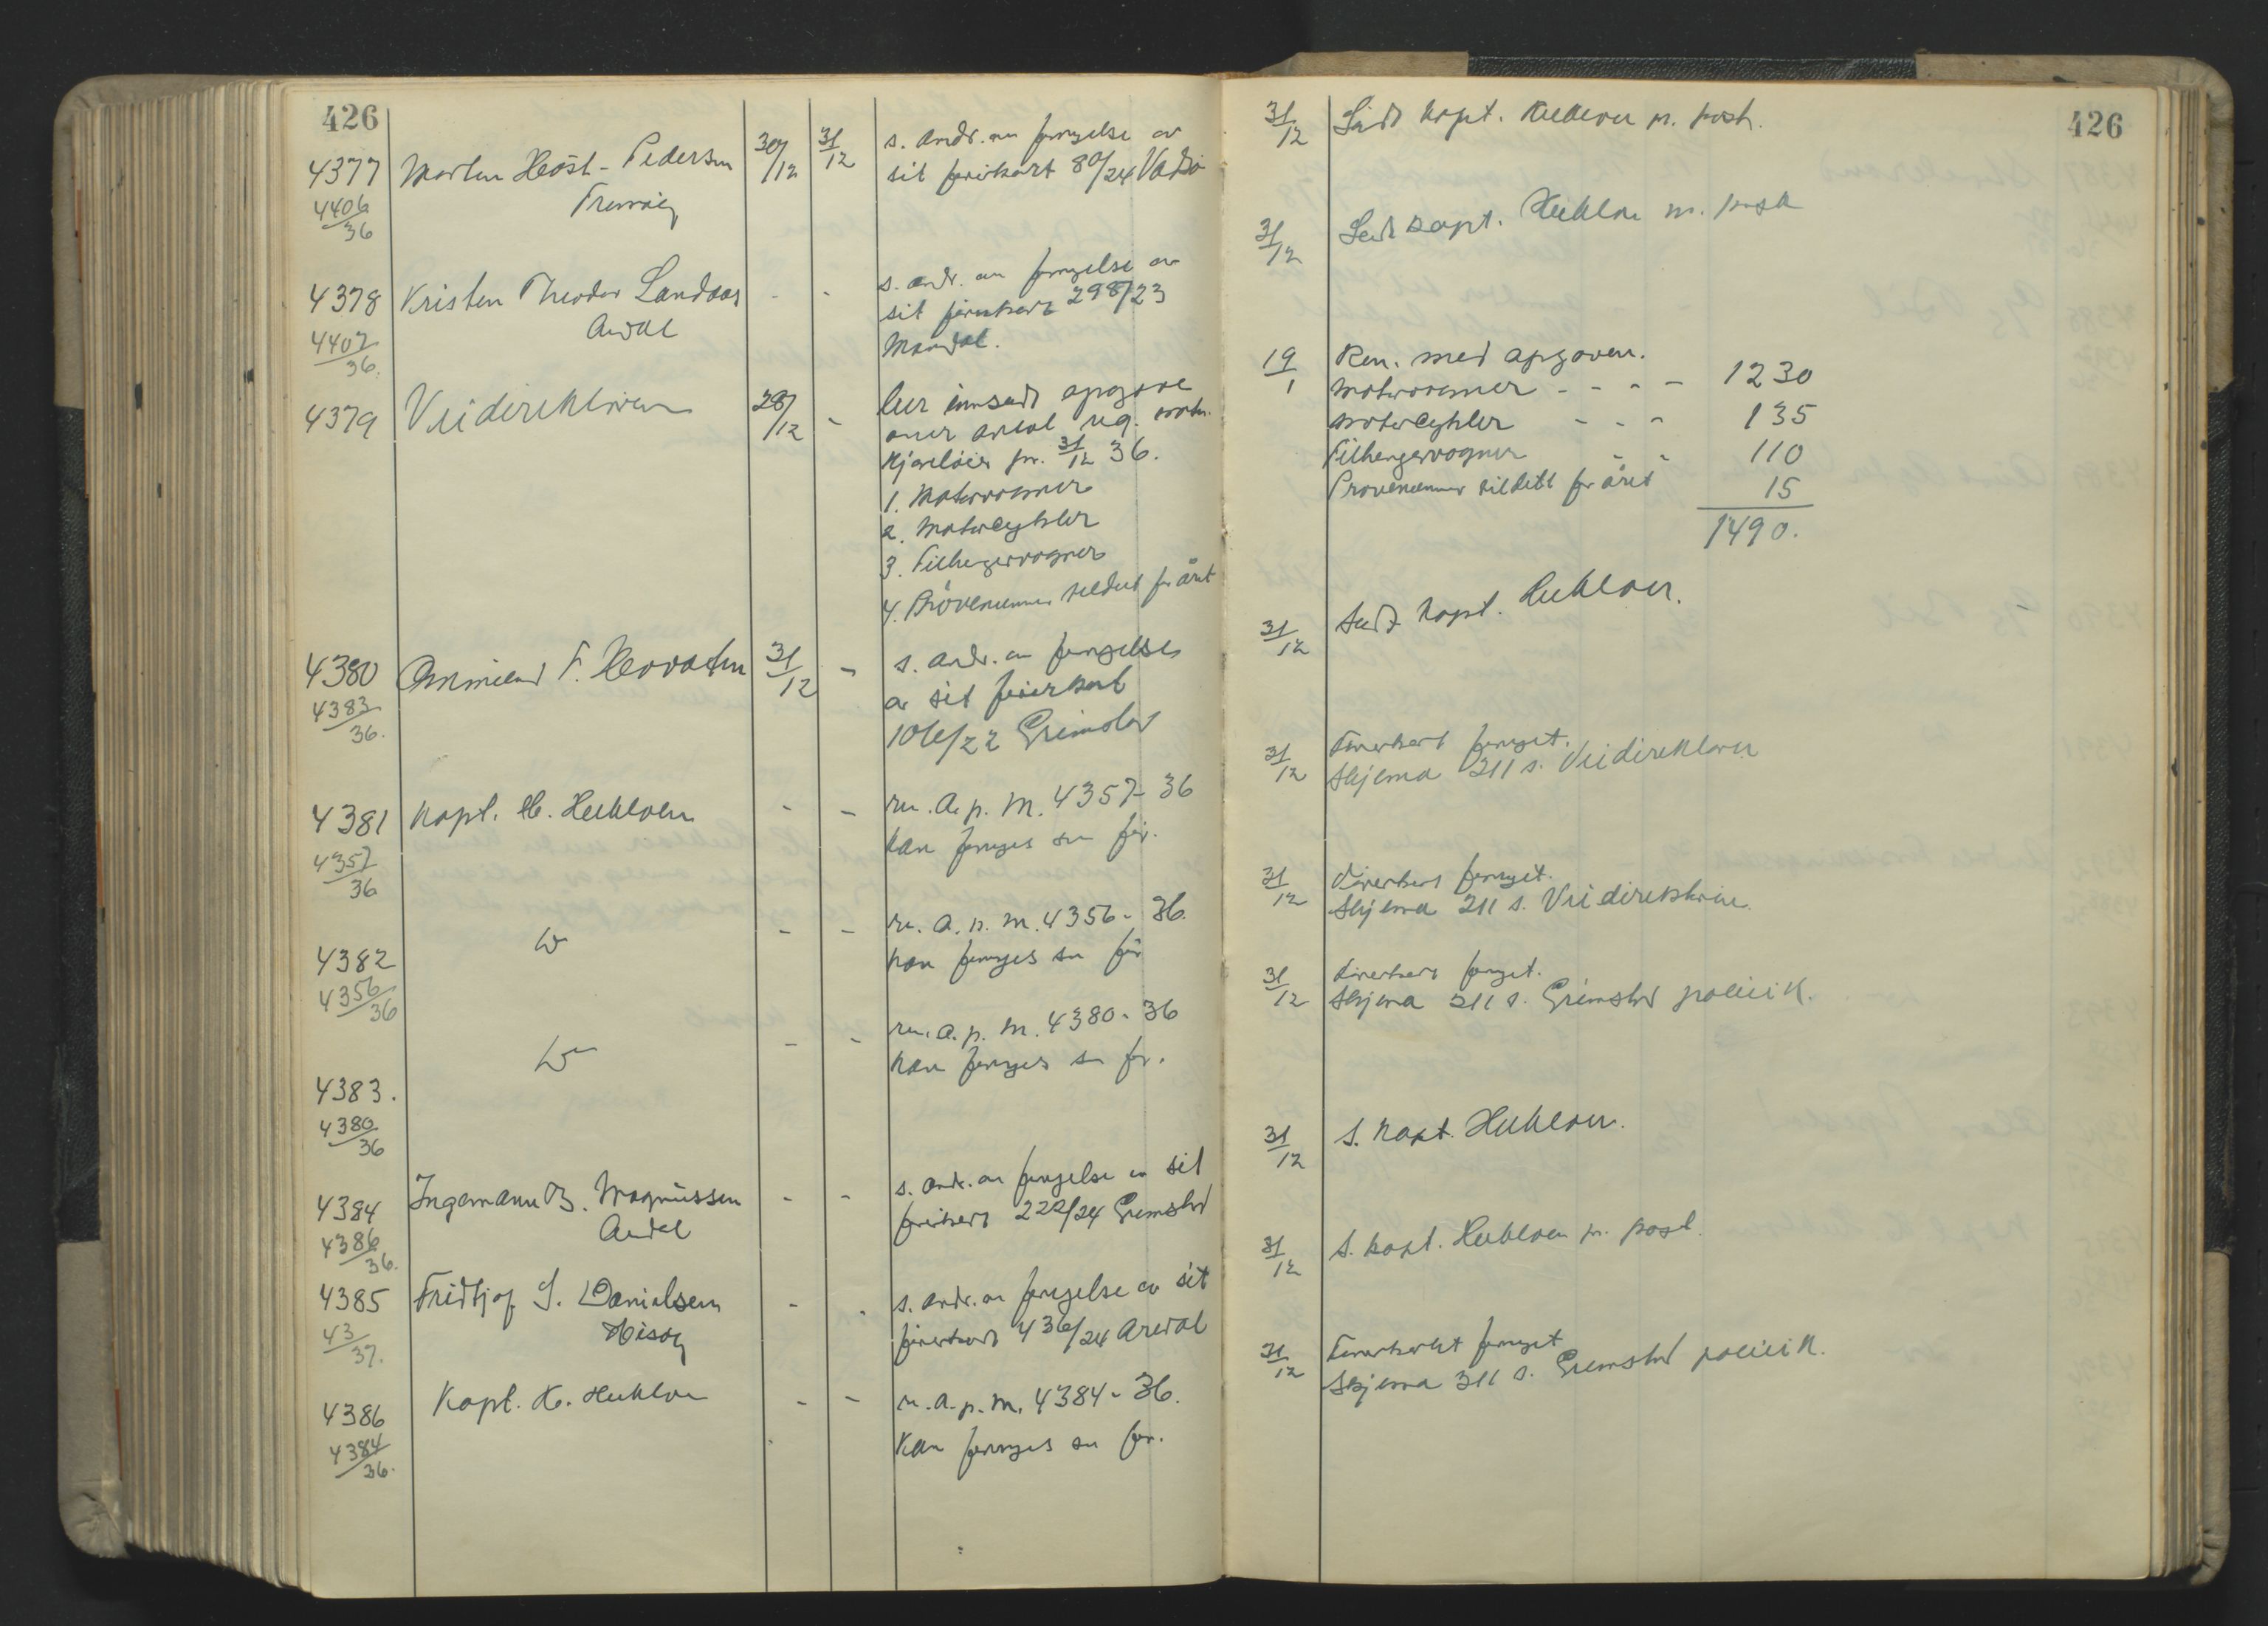 426
4377 Morten Høst-Pedersen 30/12 31/12 s. andr. om fornyelse av
4406/36 Tromøy sit førerkort 80/24 Vadsø
4378 Kristen Theodor Landaas - - s. andr. om fornyelse av
4407/36. Arudal sit førerkort 298/23
Mandal.
4379 Veidirektøren 28/12 - ber innsendt opgave
over antal reg. motor
kjøretøier pr. 31/12 36.
1. Motorvogner
2. Motorcykler
3. Tilhengervogner
4. Prøvenummer tildelt for året
4380 F. 31/12 - s. andr. om fornyelse
4383/36. av sit førerkort
106/22 Grimstad
4381 Kapt. - - 4357-36
4357/36 kan fornyes som før.
4382 - - 4356-36.
4356/36 kan fornyes som før
4383. - - 4380-36
4380/36 kan fornyes som før.
4384 Ingemann B. Magnussen - - s. andr. om fornyelse av sit
4386/36. Arudal førerkort 222/24 Grimstad
4385 Fridtjof S. Danielsen - - s. andr. om fornyelse av sit
43/37. Hisøy førerkort 436/24 Arendal
4386 Kapt. - - 4384-36.
4384/36. Kan fornyes som før.
426
31/12 Sendt kapt. p. post.
31/12 Sendt kapt. p. post
19/1 Ren. med opgaven.
Motorvogner - - - - 1230
Motorcykler - - - 135
Tilhengervogner - - 110
Prøvenummer tildelt for året 15
1490.
31/12 Sendt kapt.
31/12 Førerkort fornyet.
Skjema 211 s. Veidirektøren
31/12 Førerkort fornyet.
Skjema 211 s. Veidirektøren
31/12 Førerkort fornyet.
Skjema 211 s. Grimstad politik.
31/12 s. kapt.
31/12 s. kapt. p. post.
31/12 Førerkortet fornyet
Skjema 211 s. Grimstad politik.